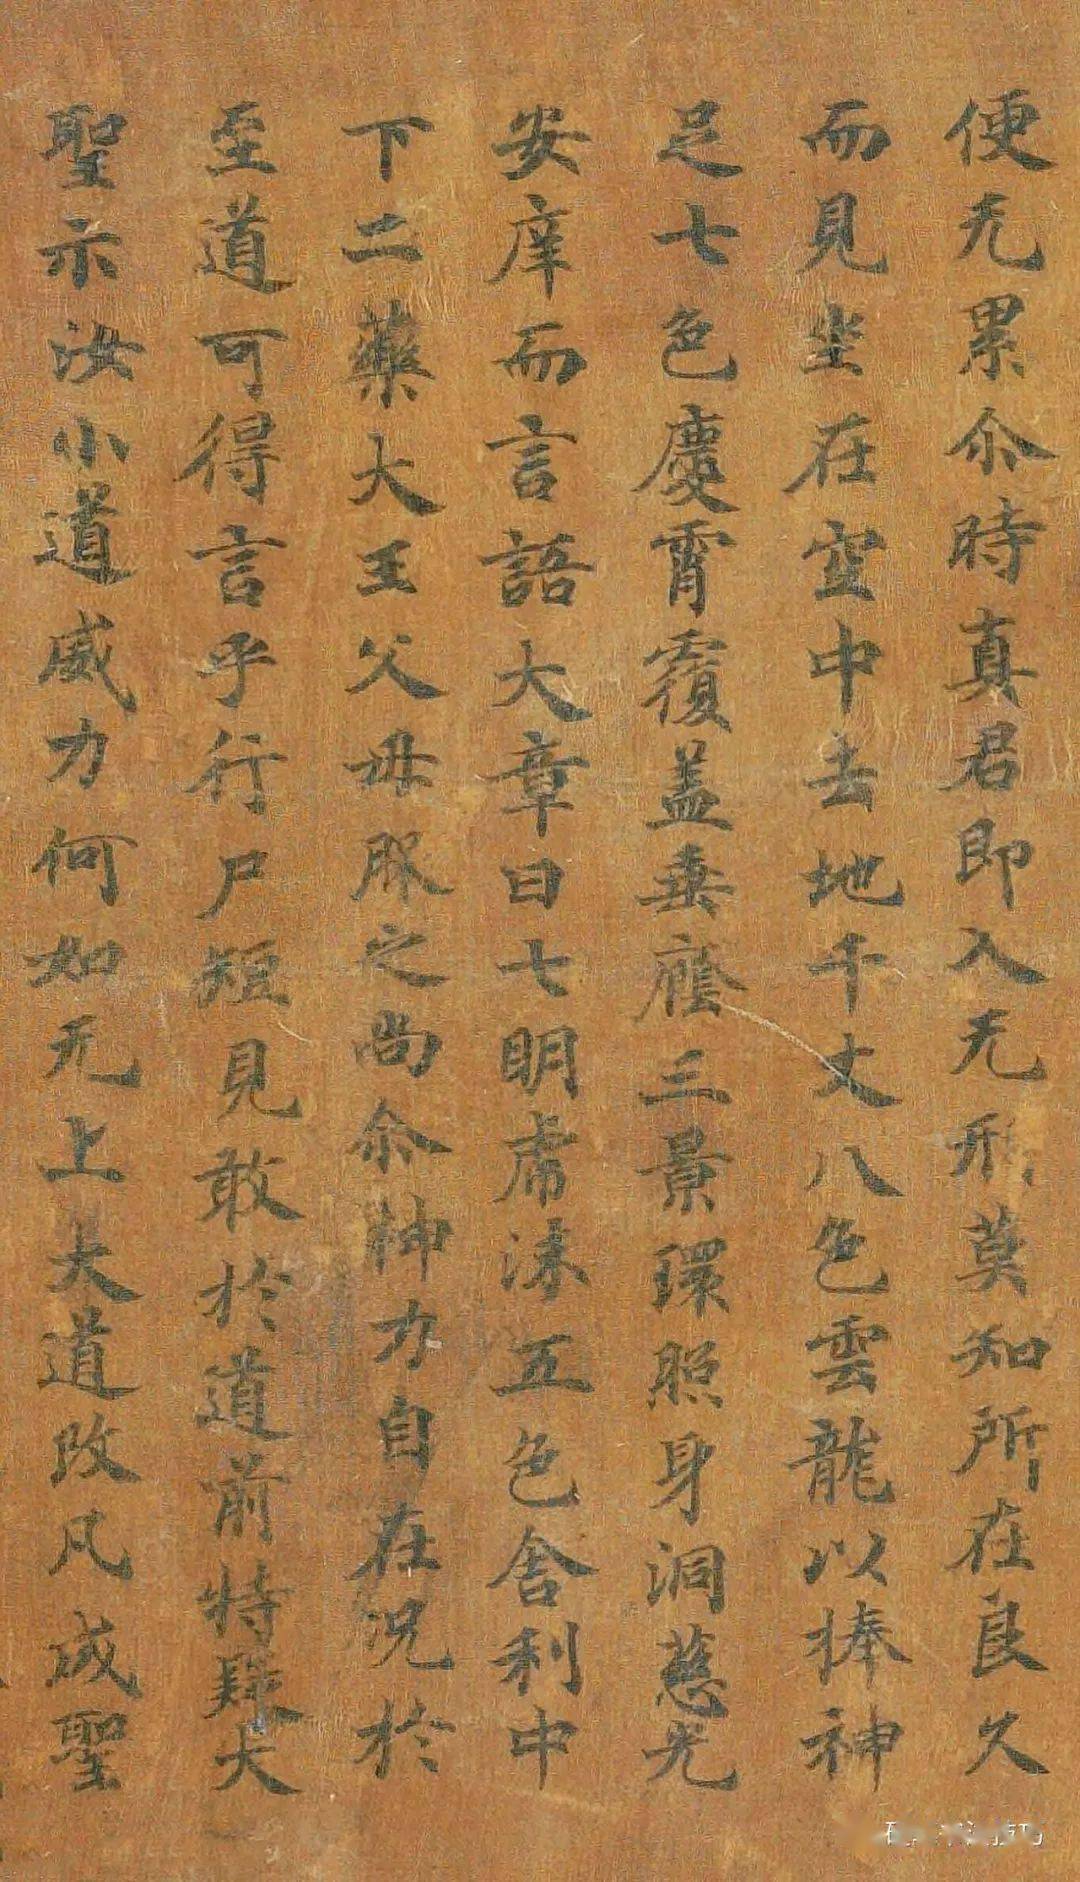 便无累尒時真君即入无形莫知所在良久
而見坐在空中去地千丈八色雲龍以捧神
足七色慶霄覆盖垂癊三景環照身洞慈光
安庠而言語大章曰七明虏沫五色舍利中
下二藥大王父毋服之尚尒神力自在况於
至道可得言乎行尸短見敢於道前特疑大
聖示汝小道威力何如无上大道改凡成聖